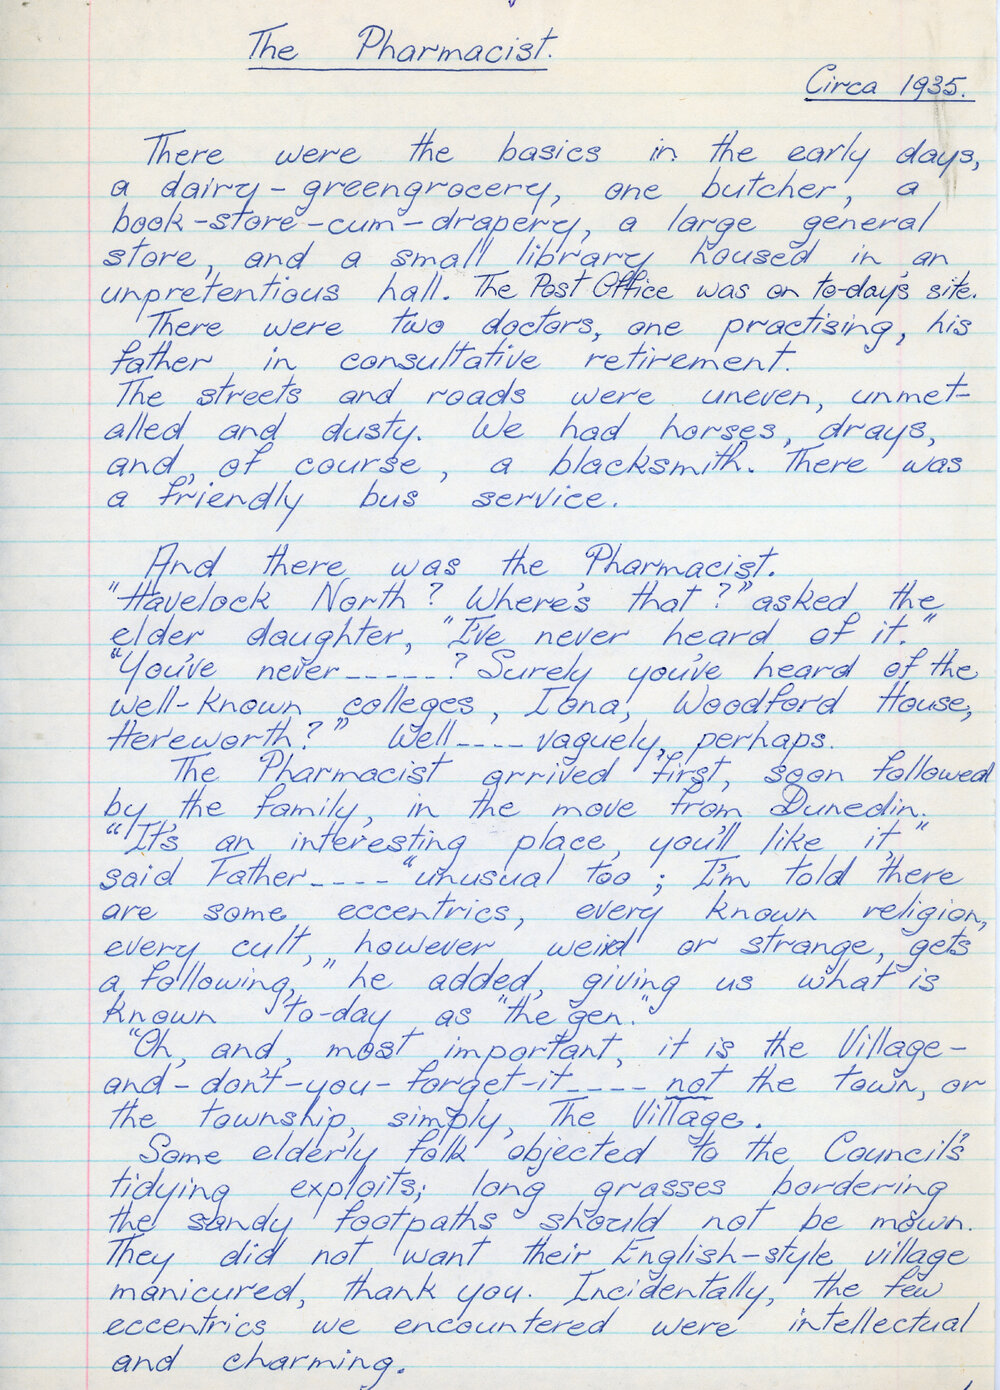 The Pharmacist.
Circa 1935.
There were the basics in the early days,
a dairy-greengrocery, one butcher, a
book-store-cum-drapery, a large general
store, and a small library housed in an
unpretentious hall. The Post Office was on to-day's site.
There were two doctors, one practising, his
father in consultative retirement.
The streets and roads were uneven, unmet-
alled and dusty. We had horses, drays,
and, of course, a blacksmith. There was
a friendly bus service.
And there was the Pharmacist.
"Havelock North? Where's that?" asked the
elder daughter, "I've never heard of it."
"You've never-----? Surely you've heard of the
well-known colleges, Iona, Woodford House,
Hereworth?" Well---- vaguely, perhaps.
The Pharmacist arrived first, soon followed
by the family, in the move from Dunedin.
"It's an interesting place, you'll like it,"
said Father---- "unusual too; I'm told there
are some eccentrics, every known religion,
every cult, however weird or strange, gets
a following," he added, giving us what is
known to-day as "the gen."
"Oh, and, most important, it is the Village-
and-don't-you-forget-it---- not the town, or
the township, simply, The Village.
Some elderly folk objected to the Council's
tidying exploits; long grasses bordering
the sandy footpaths should not be mown.
They did not want their English-style village
manicured, thank you. Incidentally, the few
eccentrics we encountered were intellectual
and charming.